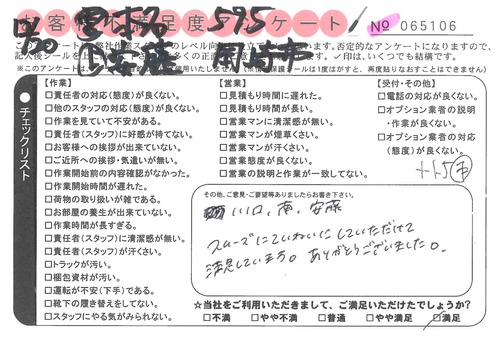 お客様不満足度アンケート
№ 065106
595
※このアンケートは
否定的なアンケートになりますので、
／印は、いくつでも結構です。
チェックリスト
【作業】
□責任者の対応(態度)が良くない。
□他のスタッフの対応(態度)が良くない。
□作業を見ていて不安がある。
□責任者(スタッフ)に好感が持てない。
□お客様への挨拶が出来ていない。
□ご近所への挨拶・気遣いが無い。
□作業開始前の内容確認がなかった。
□作業開始時間が遅れた。
□荷物の取り扱いが雑である。
□お部屋の養生が出来ていない。
□作業時間が長すぎる。
□責任者(スタッフ)に清潔感が無い。
□責任者(スタッフ)が汗くさい。
□トラックが汚い。
□梱包資材が汚い。
□運転が不安(下手)である。
□靴下の履き替えをしてない。
□スタッフにやる気がみられない。
【営業】
□見積もり時間に遅れた。
□見積もり時間が長い。
□営業マンに清潔感が無い。
□営業マンが煙草くさい。
□営業マンが汗くさい。
□営業態度が良くない。
□営業の説明と作業が一致してない。
【受付・その他】
□電話の対応が良くない。
□オプション業者の説明
・作業が良くない。
□オプション業者の対応
(態度)が良くない。
その他、ご意見・ご要望等ありましたらお書き下さい。
川口、南、安藤
スムーズにていねいにしていただけて
満足しています。ありがとうございました。
☆当社をご利用いただきまして、ご満足いただけたでしょうか?
□不満 □やや不満 □普通 □やや満足 □満足